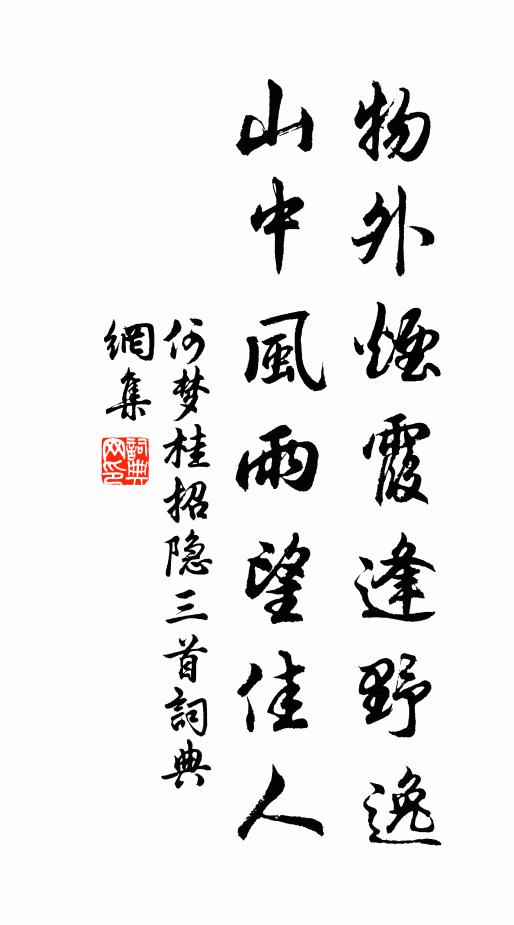 物外煙霞逢野逸
山中風雨望佳人
何梦桂招隐三首詞典
網集
詞典
网